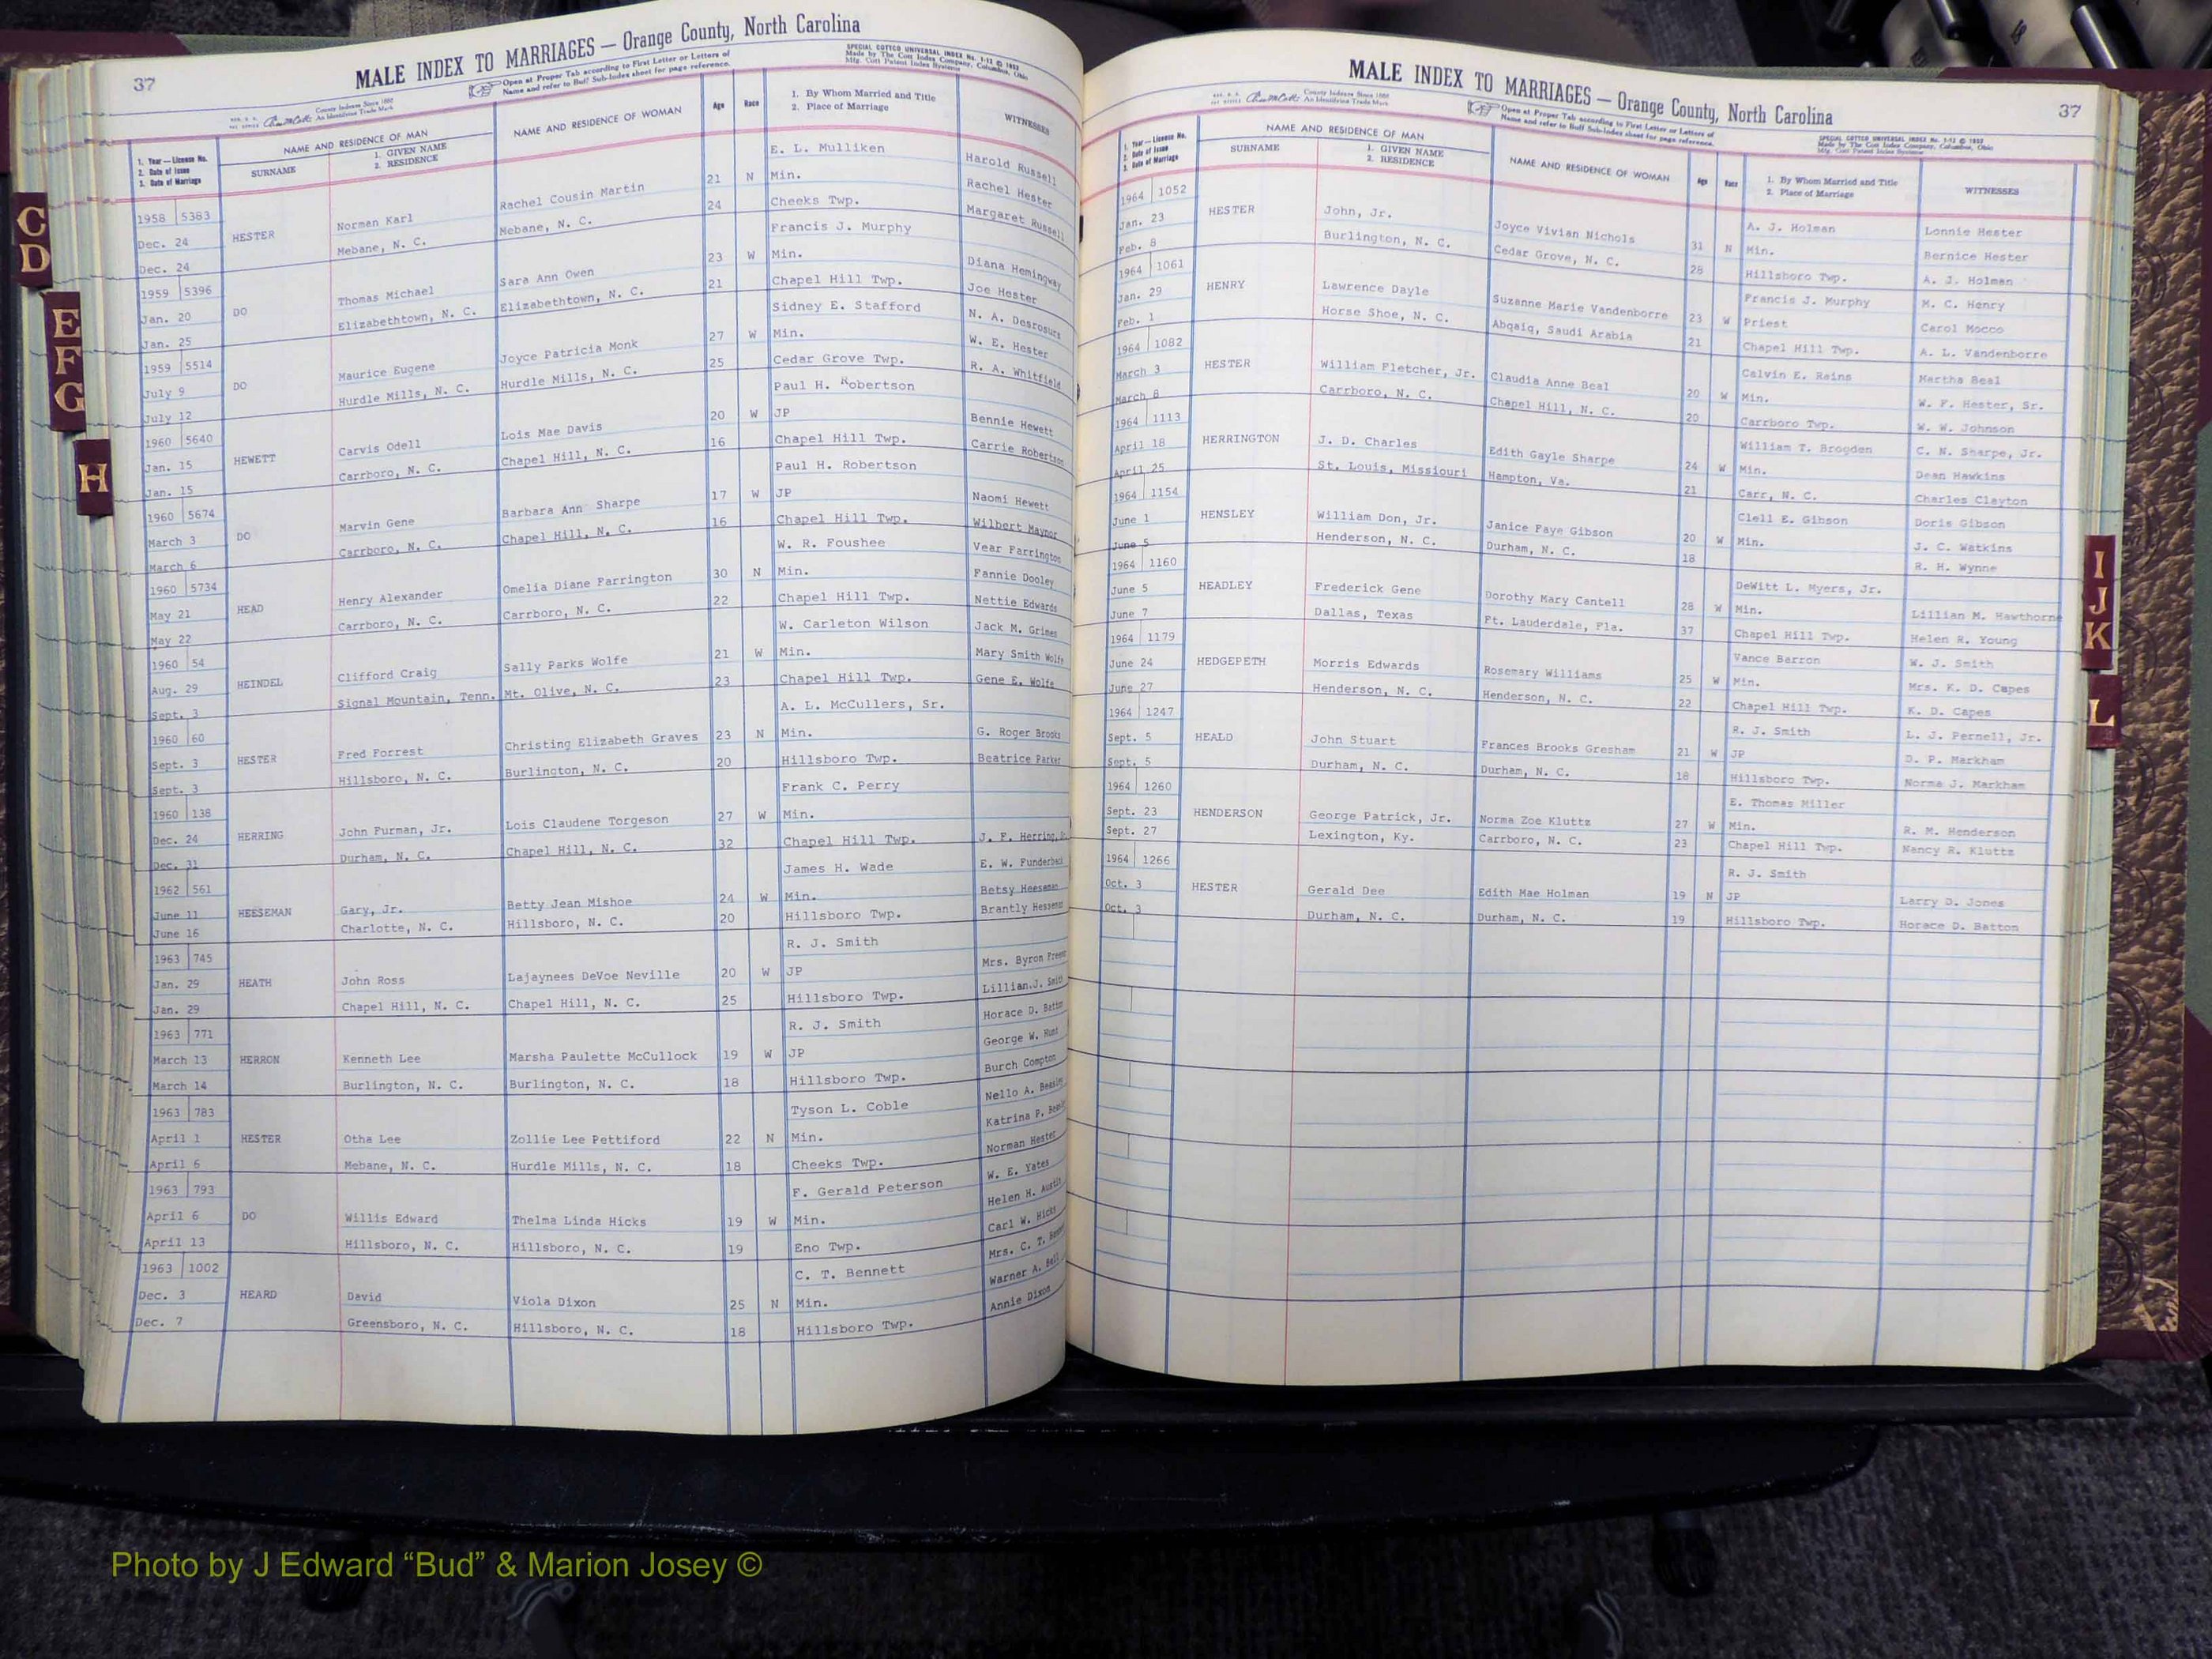 37
MALE INDEX TO MARRIAGES — Orange County, North Carolina
Open at Proper Tab according to First Letter or Letters of
Name and refer to Buff Sub-Index sheet for page reference.
SPECIAL COTTCO UNIVERSAL INDEX No. 1-12 © 1952
Made by The Cott Index Company, Columbus, Ohio
Mfg. Cott Patent Index Systems
County Indexes Since 1888
An Identifying Trade Mark
1. Year — License No.
2. Date of Issue
3. Date of Marriage
NAME AND RESIDENCE OF MAN
SURNAME
1. GIVEN NAME
2. RESIDENCE
NAME AND RESIDENCE OF WOMAN
Age
Race
1. By Whom Married and Title
2. Place of Marriage
WITNESSES
1958 5383 E. L. Mulliken Harold Russell
Dec. 24 HESTER Norman Karl Rachel Cousin Martin 21 N Min. Rachel Hester
Dec. 24 Mebane, N. C. Mebane, N. C. 24 Cheeks Twp. Margaret Russell
1959 5396 Francis J. Murphy
Jan. 20 DO Thomas Michael Sara Ann Owen 23 W Min. Diana Hemingway
Jan. 25 Elizabethtown, N. C. Elizabethtown, N. C. 21 Chapel Hill Twp. Joe Hester
1959 5514 Sidney E. Stafford N. A. Desrosurs
July 9 DO Maurice Eugene Joyce Patricia Monk 27 W Min. W. E. Hester
July 12 Hurdle Mills, N. C. Hurdle Mills, N. C. 25 Cedar Grove Twp. R. A. Whitfield
1960 5640 Paul H. Robertson
Jan. 15 HEWETT Carvis Odell Lois Mae Davis 20 W JP Bennie Hewett
Jan. 15 Carrboro, N. C. Chapel Hill, N. C. 16 Chapel Hill Twp. Carrie Robertson
1960 5674 Paul H. Robertson
March 3 DO Marvin Gene Barbara Ann Sharpe 17 W JP Naomi Hewett
March 6 Carrboro, N. C. Chapel Hill, N. C. 16 Chapel Hill Twp. Wilbert Maynor
1960 5734 W. R. Foushee Vear Farrington
May 21 HEAD Henry Alexander Omelia Diane Farrington 30 N Min. Fannie Dooley
May 22 Carrboro, N. C. Carrboro, N. C. 22 Chapel Hill Twp. Nettie Edwards
1960 54 W. Carleton Wilson Jack M. Grimes
Aug. 29 HEINDEL Clifford Craig Sally Parks Wolfe 21 W Min. Mary Smith Wolfe
Sept. 3 Signal Mountain, Tenn. Mt. Olive, N. C. 23 Chapel Hill Twp. Gene E. Wolfe
1960 60 A. L. McCullers, Sr.
Sept. 3 HESTER Fred Forrest Christing Elizabeth Graves 23 N Min. G. Roger Brooks
Sept. 3 Hillsboro, N. C. Burlington, N. C. 20 Hillsboro Twp. Beatrice Parker
1960 138 Frank C. Perry
Dec. 24 HERRING John Furman, Jr. Lois Claudene Torgeson 27 W Min.
Dec. 31 Durham, N. C. Chapel Hill, N. C. 32 Chapel Hill Twp. J. F. Herring,
1962 561 James H. Wade E. W.
June 11 HEESEMAN Gary, Jr. Betty Jean Mishoe 24 W Min. Betsy
June 16 Charlotte, N. C. Hillsboro, N. C. 20 Hillsboro Twp. Brantly
1963 745 R. J. Smith
Jan. 29 HEATH John Ross Lajaynees DeVoe Neville 20 W JP Mrs. Byron
Jan. 29 Chapel Hill, N. C. Chapel Hill, N. C. 25 Hillsboro Twp. Lillian J. Smith
1963 771 R. J. Smith Horace D. Batton
March 13 HERRON Kenneth Lee Marsha Paulette McCullock 19 W JP George W. Hunt
March 14 Burlington, N. C. Burlington, N. C. 18 Hillsboro Twp. Burch Compton
1963 783 Tyson L. Coble Nello A. Beasley
April 1 HESTER Otha Lee Zollie Lee Pettiford 22 N Min. Katrina P.
April 6 Mebane, N. C. Hurdle Mills, N. C. 18 Cheeks Twp. Norman Hester
1963 793 F. Gerald Peterson W. E. Yates
April 6 DO Willis Edward Thelma Linda Hicks 19 W Min. Helen H. Austin
April 13 Hillsboro, N. C. Hillsboro, N. C. 19 Eno Twp. Carl W. Hicks
1963 1002 C. T. Bennett Mrs. C. T.
Dec. 3 HEARD David Viola Dixon 25 N Min. Warner A. Bell
Dec. 7 Greensboro, N. C. Hillsboro, N. C. 18 Hillsboro Twp. Annie Dixon
MALE INDEX TO MARRIAGES — Orange County, North Carolina
37
County Indexes Since 1888
An Identifying Trade Mark
Open at Proper Tab according to First Letter or Letters of
Name and refer to Buff Sub-Index sheet for page reference.
SPECIAL COTTCO UNIVERSAL INDEX No. 1-12 © 1952
Made by The Cott Index Company, Columbus, Ohio
Mfg. Cott Patent Index Systems
1. Year — License No.
2. Date of Issue
3. Date of Marriage
NAME AND RESIDENCE OF MAN
SURNAME
1. GIVEN NAME
2. RESIDENCE
NAME AND RESIDENCE OF WOMAN
Age
Race
1. By Whom Married and Title
2. Place of Marriage
WITNESSES
1964 1052 A. J. Holman Lonnie Hester
Jan. 23 HESTER John, Jr. Joyce Vivian Nichols 31 N Min. Bernice Hester
Feb. 8 Burlington, N. C. Cedar Grove, N. C. 28 Hillsboro Twp. A. J. Holman
1964 1061 Francis J. Murphy M. C. Henry
Jan. 29 HENRY Lawrence Dayle Suzanne Marie Vandenborre 23 W Priest Carol Mocco
Feb. 1 Horse Shoe, N. C. Abqaiq, Saudi Arabia 21 Chapel Hill Twp. A. L. Vandenborre
1964 1082 Calvin E. Rains Martha Beal
March 3 HESTER William Fletcher, Jr. Claudia Anne Beal 20 W Min. W. F. Hester, Sr.
March 8 Carrboro, N. C. Chapel Hill, N. C. 20 Carrboro Twp. W. W. Johnson
1964 1113 William T. Brogden C. N. Sharpe, Jr.
April 18 HERRINGTON J. D. Charles Edith Gayle Sharpe 24 W Min. Dean Hawkins
April 25 St. Louis, Missiouri Hampton, Va. 21 Carr, N. C. Charles Clayton
1964 1154 Clell E. Gibson Doris Gibson
June 1 HENSLEY William Don, Jr. Janice Faye Gibson 20 W Min. J. C. Watkins
June 5 Henderson, N. C. Durham, N. C. 18 R. H. Wynne
1964 1160 DeWitt L. Myers, Jr.
June 5 HEADLEY Frederick Gene Dorothy Mary Cantell 28 W Min. Lillian M. Hawthorne
June 7 Dallas, Texas Ft. Lauderdale, Fla. 37 Chapel Hill Twp. Helen R. Young
1964 1179 Vance Barron W. J. Smith
June 24 HEDGEPETH Morris Edwards Rosemary Williams 25 W Min. Mrs. K. D. Capes
June 27 Henderson, N. C. Henderson, N. C. 22 Chapel Hill Twp. K. D. Capes
1964 1247 R. J. Smith L. J. Pernell, Jr.
Sept. 5 HEALD John Stuart Frances Brooks Gresham 21 W JP D. P. Markham
Sept. 5 Durham, N. C. Durham, N. C. 18 Hillsboro Twp. Norma J. Markham
1964 1260 E. Thomas Miller
Sept. 23 HENDERSON George Patrick, Jr. Norma Zoe Kluttz 27 W Min. R. M. Henderson
Sept. 27 Lexington, Ky. Carrboro, N. C. 23 Chapel Hill Twp. Nancy R. Kluttz
1964 1266 R. J. Smith
Oct. 3 HESTER Gerald Dee Edith Mae Holman 19 N JP Larry D. Jones
Oct. 3 Durham, N. C. Durham, N. C. 19 Hillsboro Twp. Horace D. Batton
C
D
E
F
G
H
I
J
K
L
Photo by J Edward “Bud” & Marion Josey ©